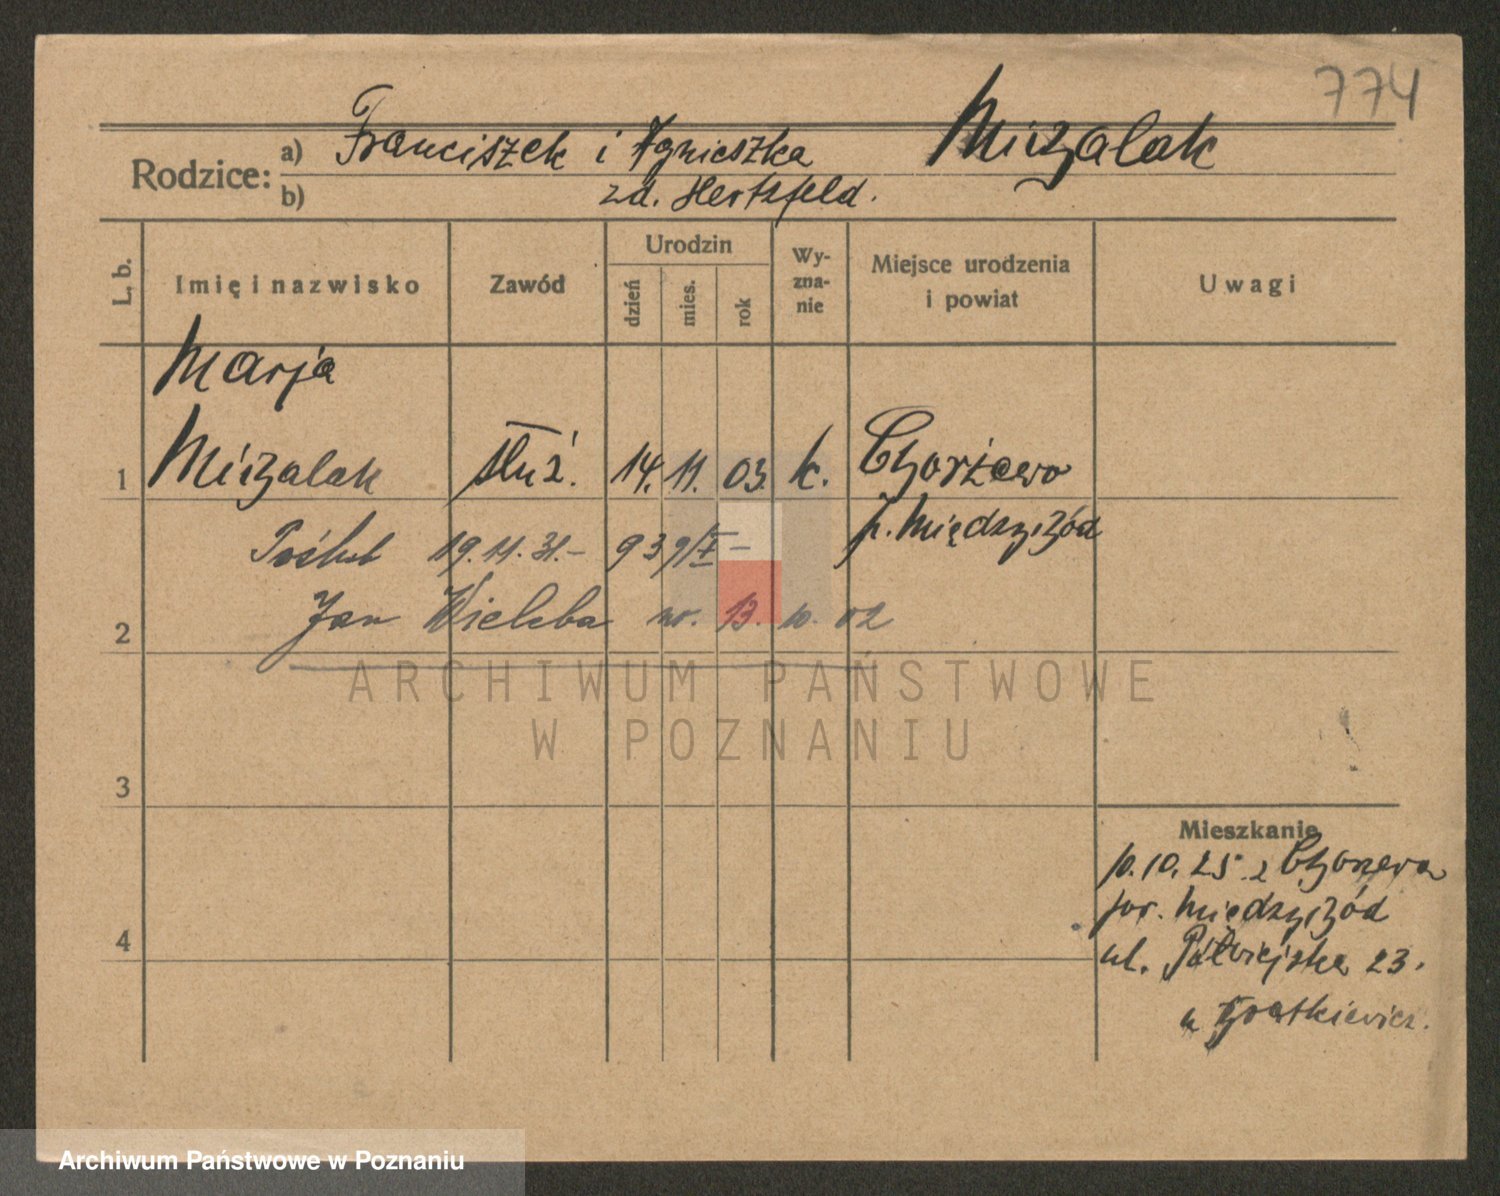 774
Rodzice: a) Franciszek i Agnieszka Michalak
b) zd. Hertzfeld.
L. b. Imię i nazwisko Zawód Urodzin dzień mies. rok Wyznanie Miejsce urodzenia i powiat Uwagi
Marja
1 Michalak służ. 14. 11. 03. k. Chorzewo
p. Międzychód
Poślub 19.11.31.- 939/V -
2 Jan ur. 13. 10. 02
ARCHIWUM PAŃSTWOWE
W POZNANIU
3
Mieszkanie
10. 25. z Chorzewa
4 pow. Międzychód
ul. Półwiejska 23.
u
Archiwum Państwowe w Poznaniu